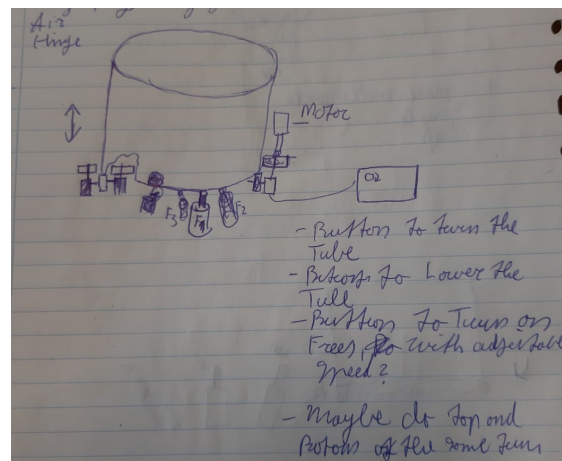 Air
Hinge
Motor
O2
F3
F1
F2
- Button to turn the
Tube
- to Lower the
- Button to Turn on
with adjustable
speed?
- Maybe do top and
of the same